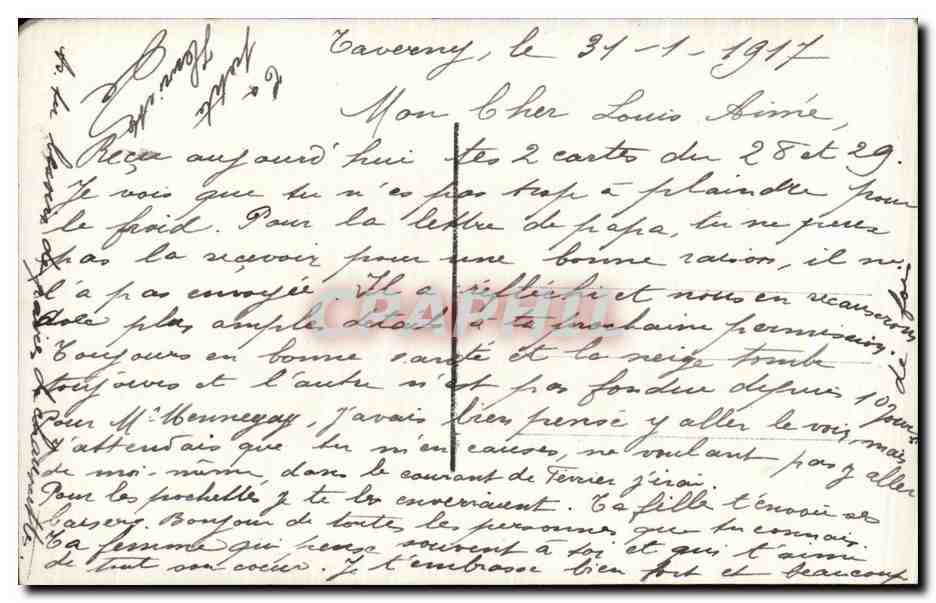 Taverny, le 31-1-1917
Mon Cher Louis Aimée,
Reçu aujourd'hui tes 2 cartes du 28 et 29.
Je vois que tu n'es pas trop à plaindre pour
le froid. Pour la lettre de papa, tu ne peux
pas la reçevoir pour une bonne raison, il ne
l'a pas envoyée. Il a réfléchi et nous en recauserons
avec plus amples détails à ta prochaine permission.
Toujours en bonne santé et la neige tombe
toujours et l'autre n'est pas fondue depuis 10 jours
Pour Mr Mennegay, j'avais bien pensé y aller le voir, mais
j'attendais que tu m'en causes, ne voulant pas y aller
de moi-même, dans le courant de Février j'irai.
Pour les pochettes, je te les enverrai. Ta fille t'envoie ses
baisers. Bonjour de toutes les personnes que tu connais.
Ta femme qui pense souvent à toi et qui t'aime
de tout son coeur. Je t'embrasse bien fort et beaucoup
de fois
Ta petite
Henriette
As tu besoin de
CPAPHIL